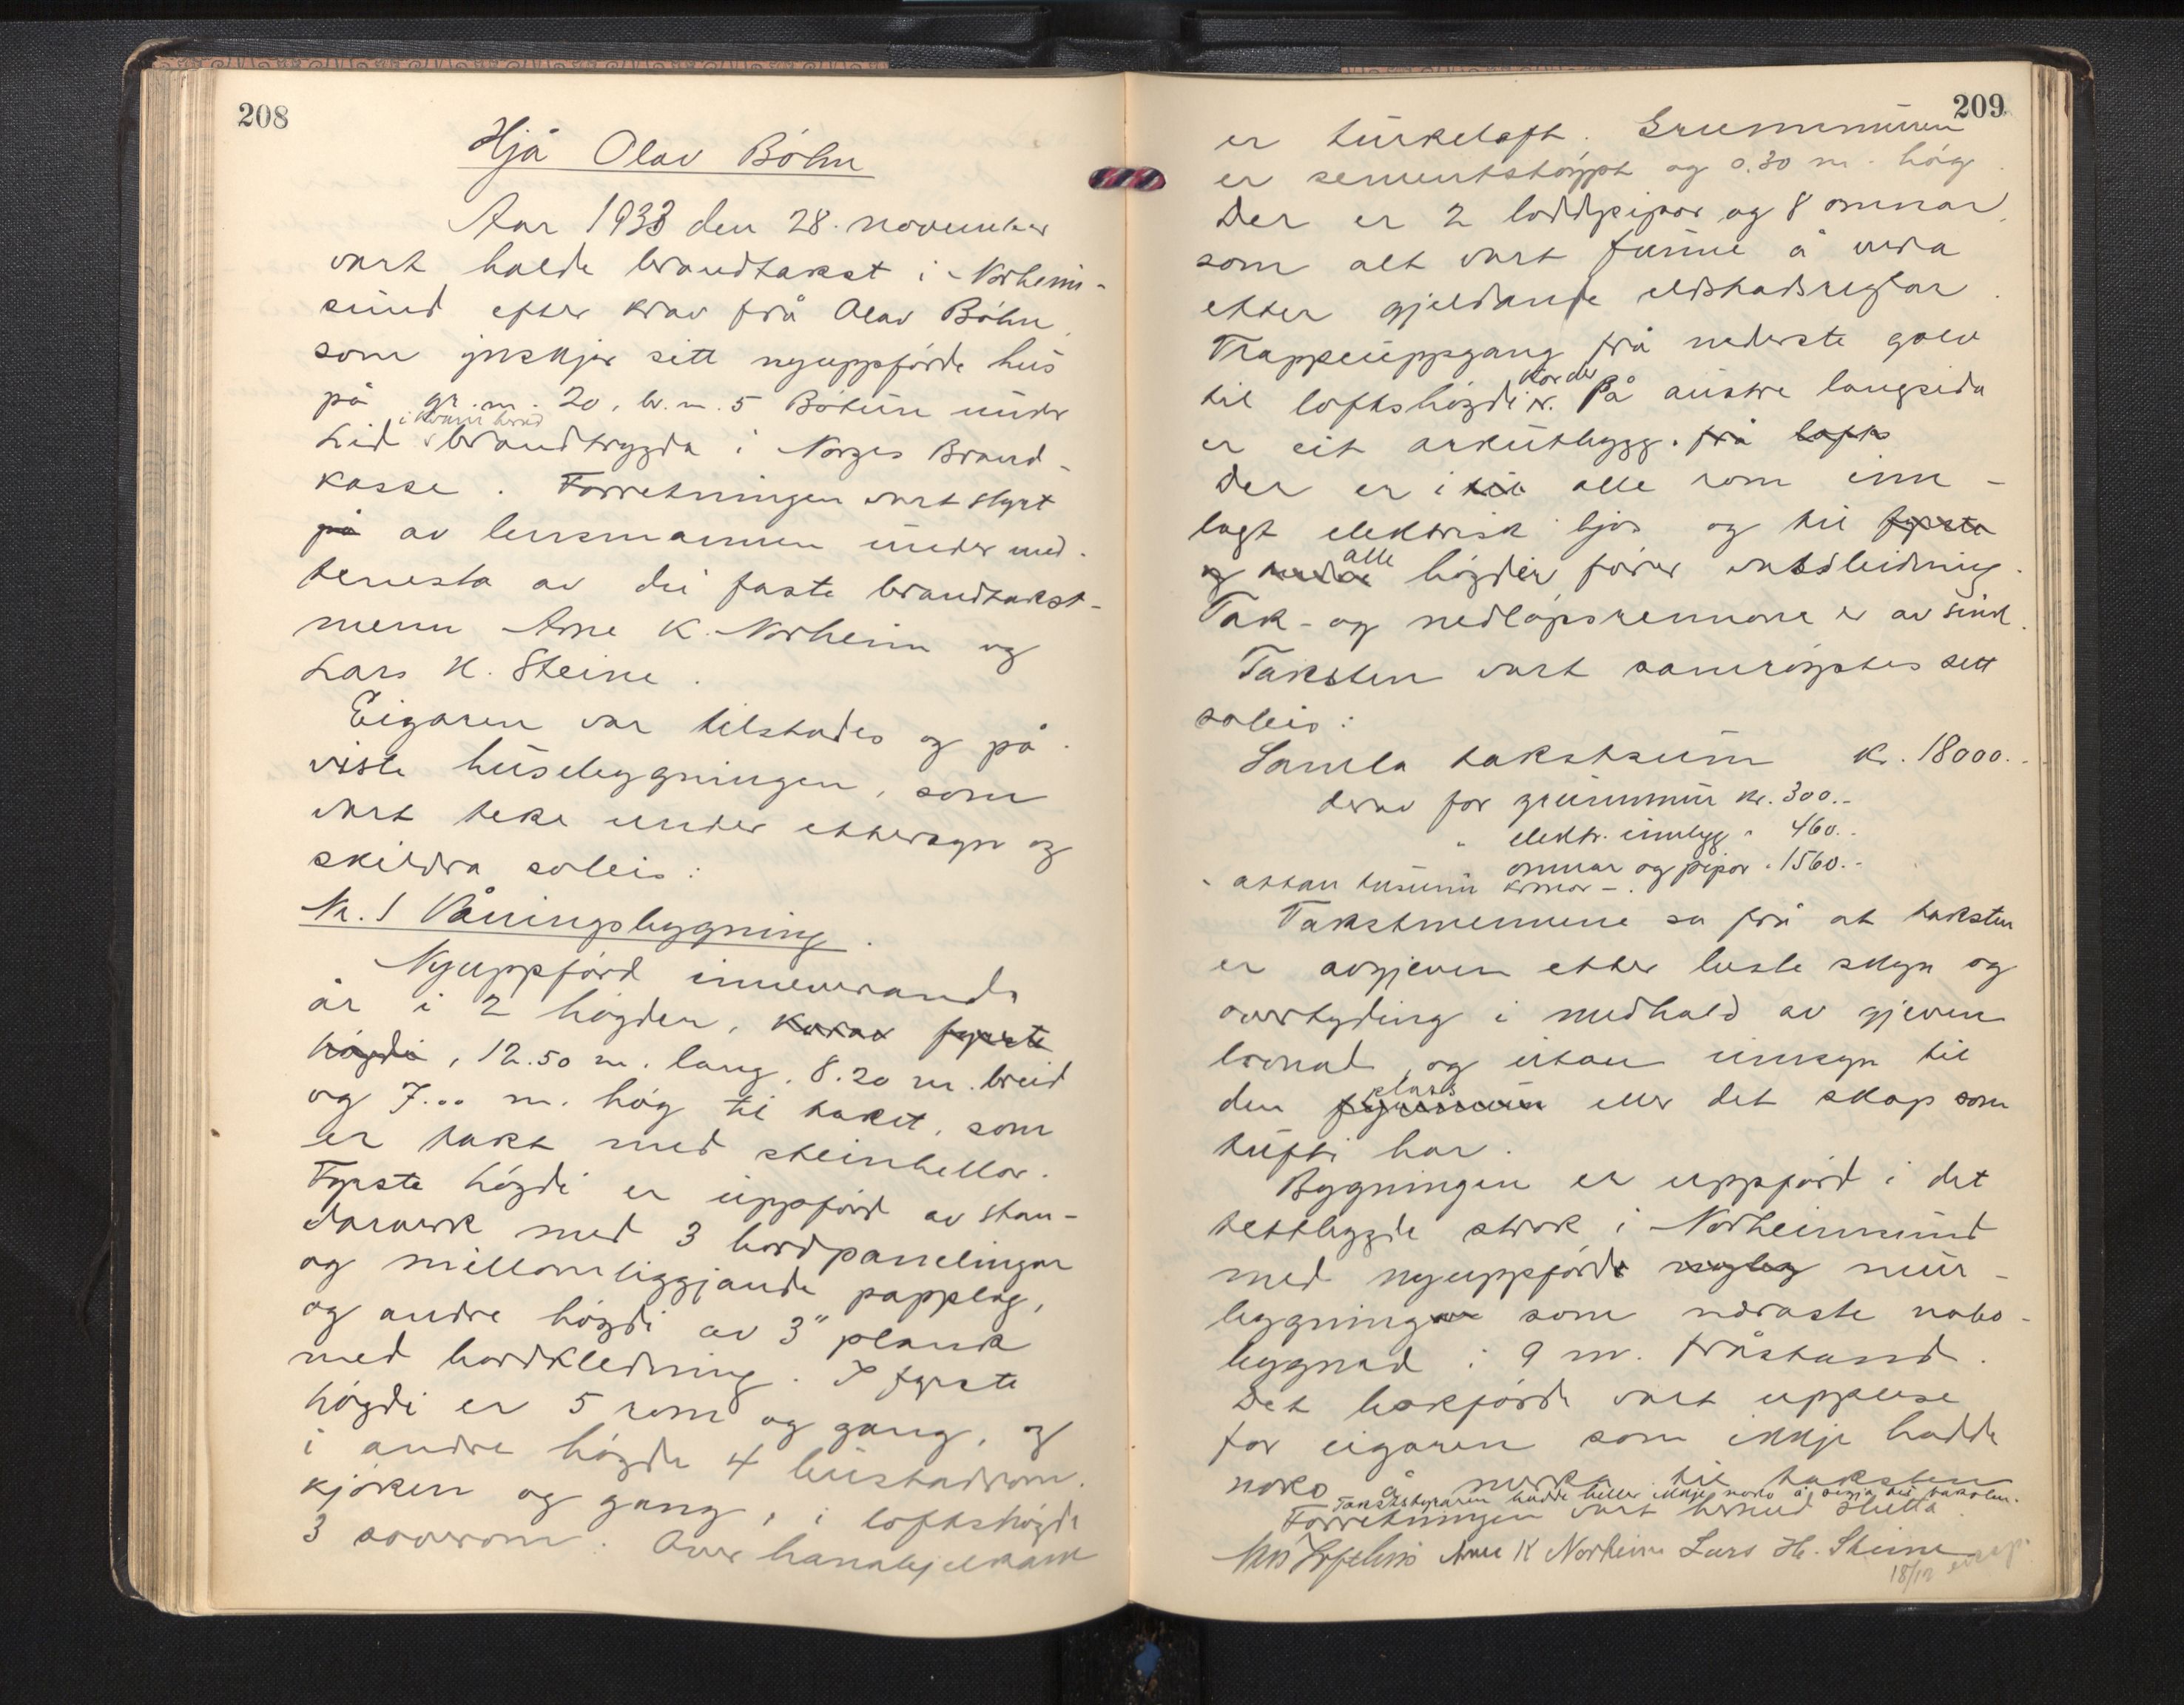 208
Hjå Olav Böhn
Aar 1933 den 28. november
vart halde brandtakst i Norheim-
sund efter krav frå Olav Böhn,
som ynskjer sitt nyuppförde hus
på gr. n. 20, br. n. 5 Bötun under
i Kvam herad
Lid brandtrygda i Norges Brand-
kasse. Forretningen vart styrt
på av lensmannen under med-
tenesta av dei faste brandtakst-
menn Arne K. Norheim og
Lars H. Steine.
Eigaren var tilstades og på-
viste husebygningen, som
vart teke under ettersyn og
skildra soleis:
Nr. 1 Våningsbygning.
Nyuppförd inneverande
år i 2 högder, fyrste
högdi, 12.50 m. lang, 8.20 m. breid
og 7.00 m. hög til taket, som
er takt med steinhellor.
Fyrste högdi er uppförd av stan-
darverk med 3 bordpanelingar
og millomliggjande papplag,
og andre högdi av 3" plank
med bordkledning. I fyrste
högdi er 5 rom og gang, og
i andre högde 4 bustadrom,
kjöken og gang, i loftshögde
3 soverom. Over hanabjelkane
209
er turkeloft. Grunnmuren
er sementstöypt og 0.30 m. hög.
Der er 2 loddpipor og 8 omnar,
som alt vart funne å vera
etter gjeldande eldstadsreglar.
Trappeuppgang frå nederste golv
til loftshögdi. På austre langsida
er eit arkutbygg. frå lofts
Der er i til alle rom inn-
lagt elektrisk ljos og til fyrste
alle
og andre högder förer vatsleidning.
Tak- og nedlöpsrennone er av sink.
Taksten vart samröystes sett
soleis:
Samla takstsum kr. 18000.-
derav for grunnmur kr. 300.-
" elektr. innlegg " 460.-
omnar og pipor " 1560.-
- attan tusund kronor -.
Takstmennene sa frå at taksten
er avgjeven etter beste skyn og
overtyding i medhald av gjeven
lovnad, og utan umsyn til
plass
den eller det skap som
tufti har.
Bygningen er uppförd i det
tettbygde strok i Norheimsund
med nyuppförde mur-
bygning som næraste nabo-
bygnad i 9 m. fråstand.
Det bokförde vart upplese
for eigaren som ikkje hadde
noko å merka til taksten
Takststyraren hadde heller ikkje noko å segja til taksten.
Forretningen vart hermed slutta.
Arne K Norheim Lars H. Steine
18/12